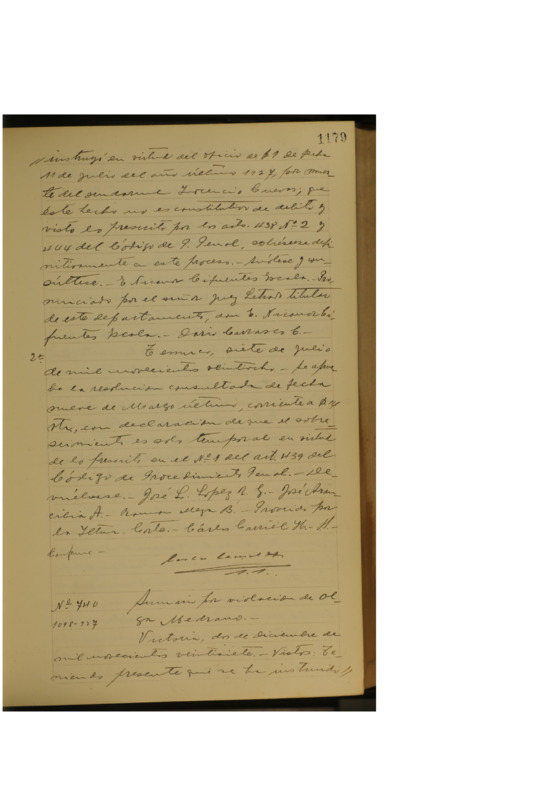 1179
instruyó en virtud del oficio de f 1 de fecha
11 de julio del año último 1927, por muer-
te del gendarme Inocencio Cuevas; que
este hecho no es constitutivo de delito y
visto lo prescrito por los arts. 438 Nº 2 y
444 del Código de P. Penal, sobreséese defi-
nitivamente en este proceso.- Anótese y con-
súltese.- E. Nicanor Cifuentes Escala.- Pro-
nunciado por el señor Juez Letrado titular
de este departamento, don E. Nicanor Ci-
fuentes Escala.- Darío Carrasco C.-
2ª Temuco, siete de julio
de mil novecientos veintiocho.- Se aprue-
ba la resolución consultada de fecha
nueve de Marzo último, corriente a f
vta, con declaración de que el sobre-
seimiento es solo temporal en virtud
de lo prescrito en el Nº 1 del art 439 del
Código de Procedimiento Penal.- De-
vuélvase.- José L. Lopez R. G.- José Aran-
cibia A.- Ramon Meza B.- Proveído por
la Iltma. Corte.- Cárlos Casriel H.- H.-
Conforme.-
S.S.
Nº 740 Sumario por violación de Ol-
ga Medrano.-
Victoria, dos de diciembre de
mil novecientos veintisiete.- Vistos: Te-
niendo presente que se ha instruido //